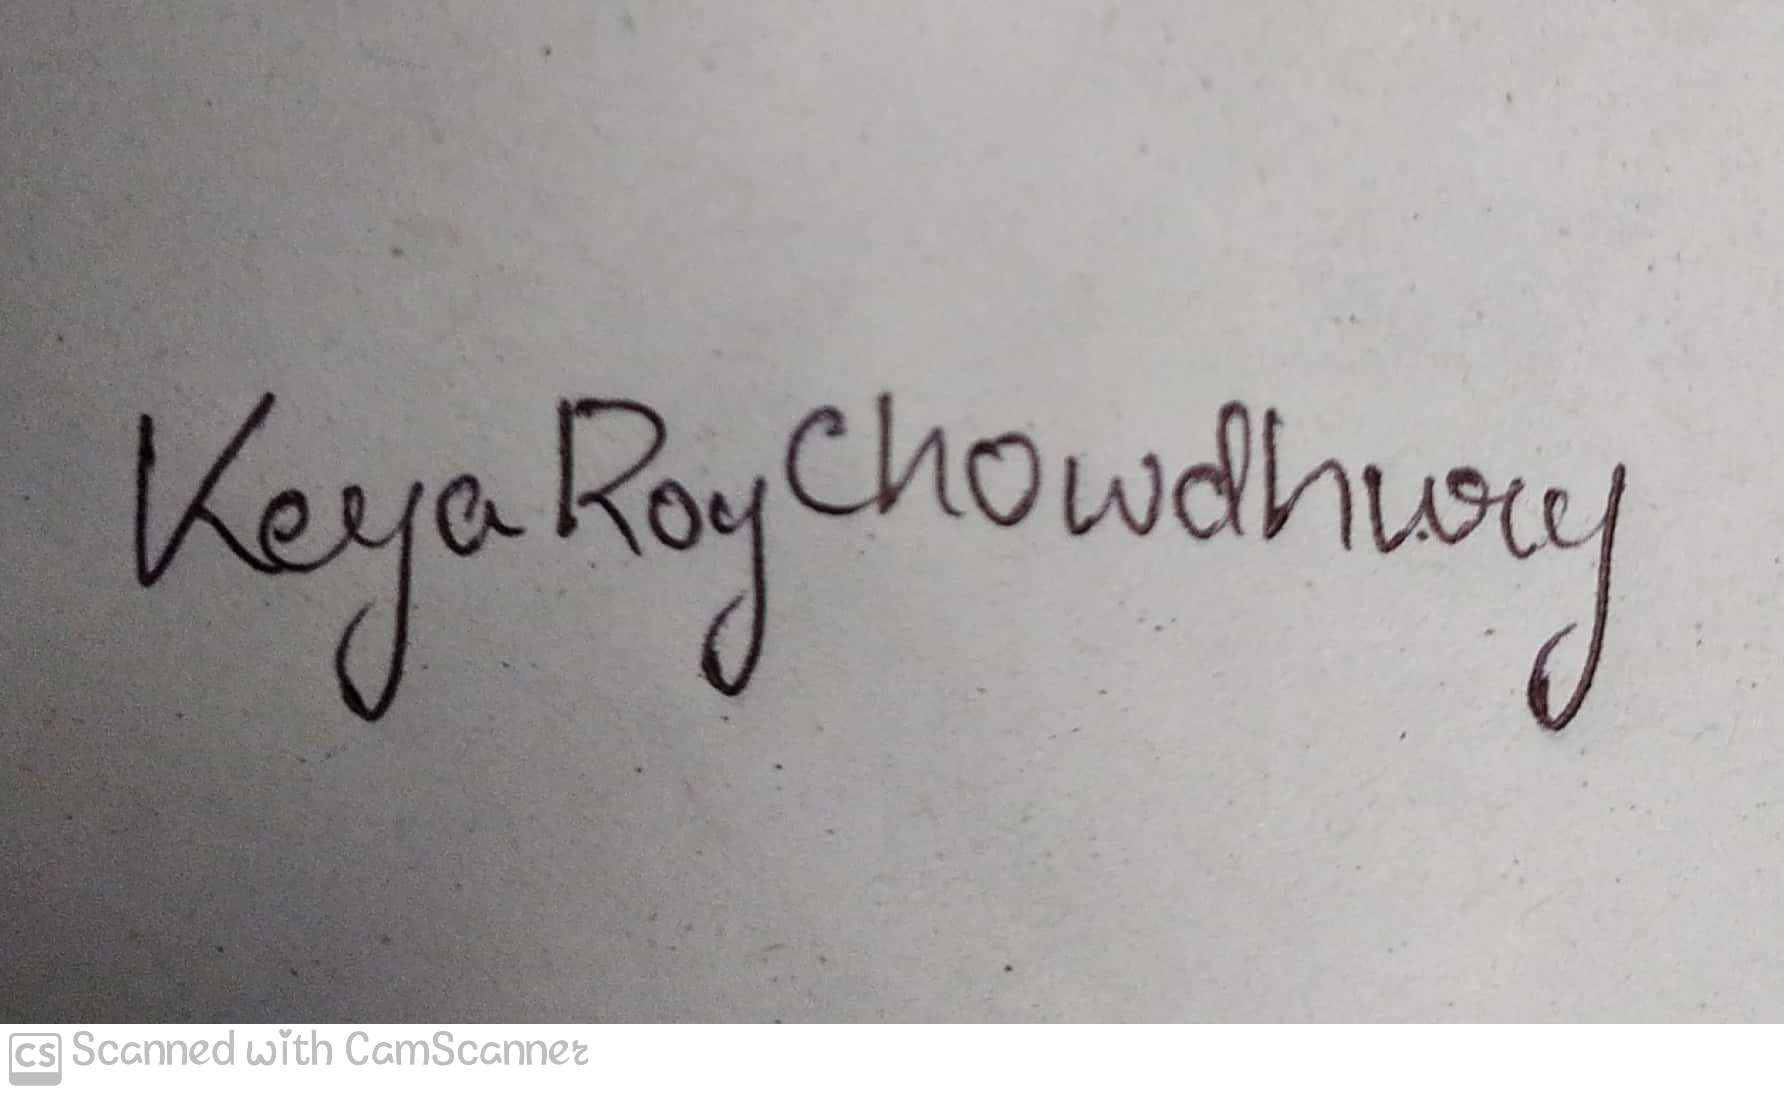 Keya Roy Chowdhury
CS Scanned with CamScanner